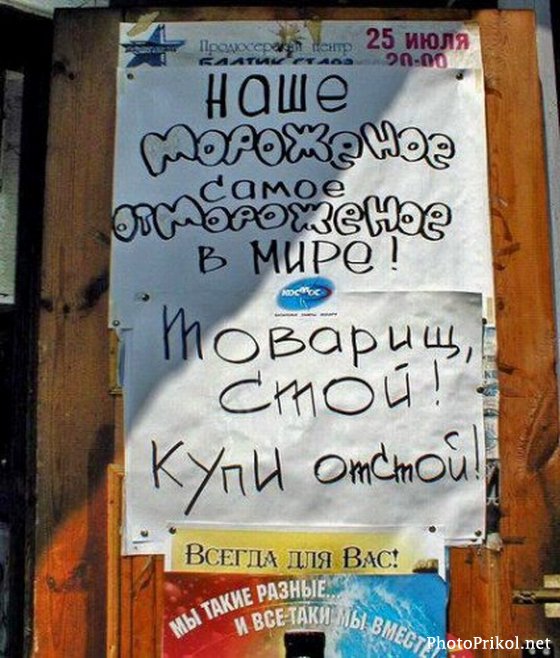 Продюсерский центр 25 ИЮЛЯ
БАЛТИК СТАР 20-00
НАШЕ
МОРОЖЕНОЕ
САМОЕ
ОТМОРОЖЕНОЕ
В МИРЕ!
КОСМОС
Товарищ,
Стой!
Купи отстой!
ВСЕГДА ДЛЯ ВАС!
МЫ ТАКИЕ РАЗНЫЕ...
И ВСЕ-ТАКИ МЫ ВМЕСТЕ
PhotoPrikol.net